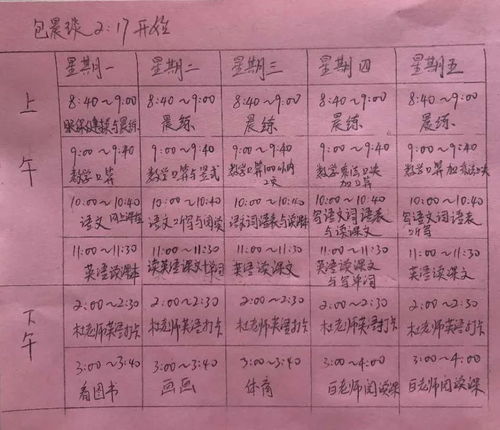 2:17开始
星期一 星期二 星期三 星期四 星期五
上午
8:40~9:00 8:40~9:00 8:40~9:00 8:40~9:00 8:40~9:00
眼保健操与晨练 晨练 晨练 晨练 晨练
9:00~9:40 9:00~9:40 9:00~9:40 9:00~9:40 9:00~9:40
数学口算 数学口算与竖式 数学口算100以内 数学乘法口决 数学口算
10:00~10:40 10:00~10:40 10:00~10:40 10:00~10:40 10:00~10:40
语文 网上课程 语文听写与阅读 语文词语表与读课本 写语文词语表 写语文词语表
与读课文 听写
11:00~11:30 11:00~11:30 11:00~11:30 11:00~11:30 11:00~11:30
英语读课本 读英语课文十单词 英语读课文 英语读课文 英语读课文
与写单词
下午
2:00~2:30 2:00~2:30 2:00~2:30 2:00~2:30 2:00~2:30
杜老师英语打卡 杜老师英语打卡 杜老师英语打卡 杜老师英语打卡 杜老师英语打卡
3:00~3:40 3:00~3:40 3:00~3:40 3:00~4:00 3:00~4:00
看图书 画画 体育 百老师阅读课 百老师阅读课